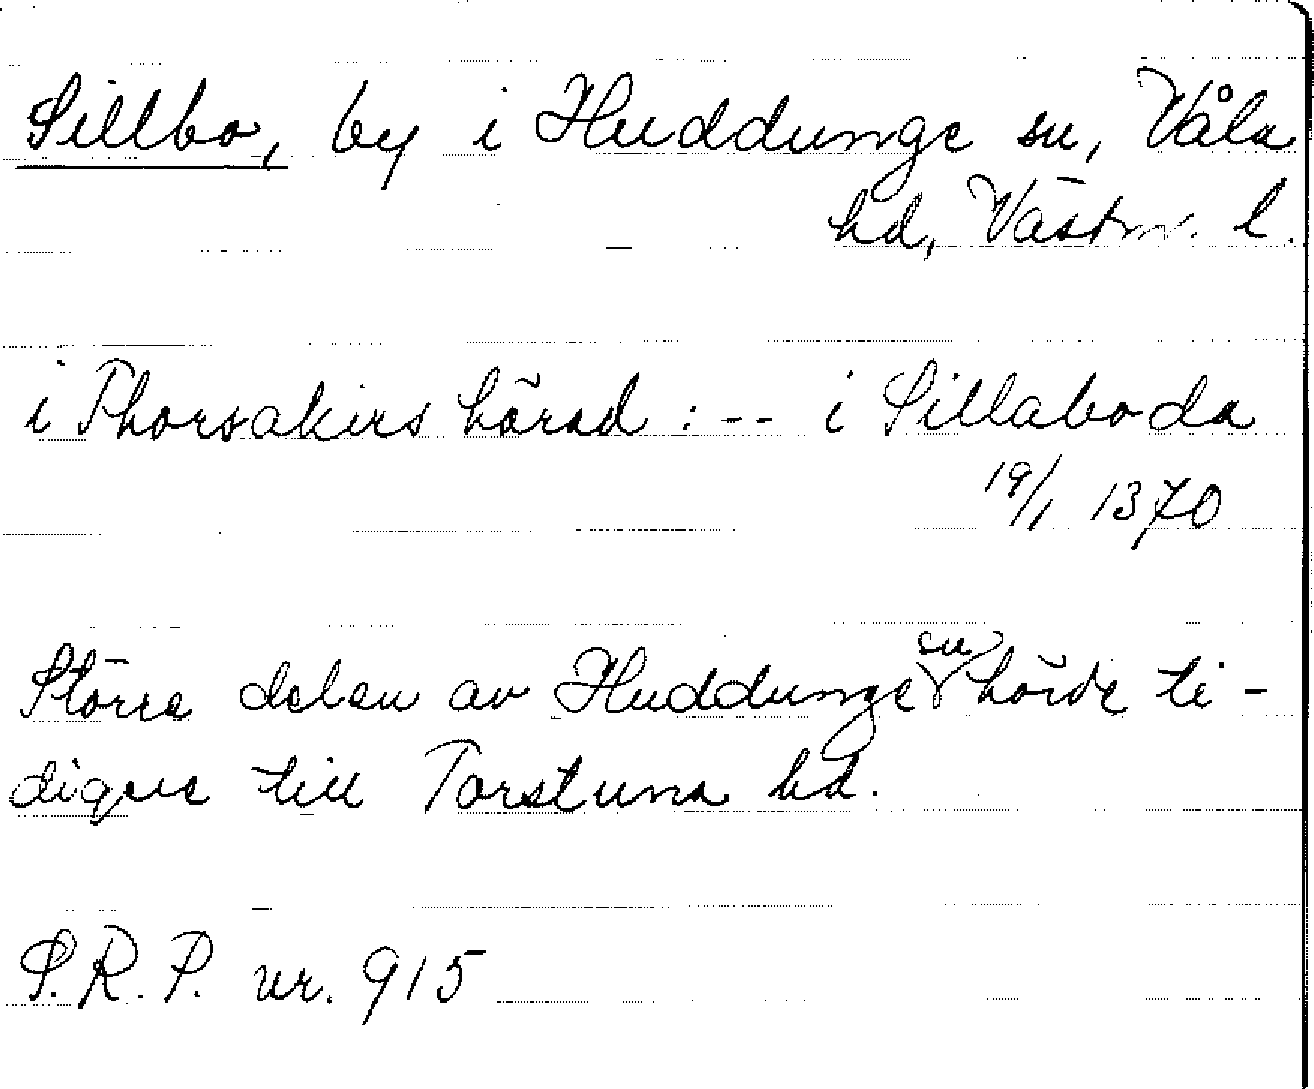 Sillbo, by i Huddunge sn, Våla
hd, Västm. l.
i Thorsakirs hörad : -- i Sillaboda
19/1 1370
Större delen av Huddunge sn hörde ti-
digare till Torstuna hd.
S.R.P. nr. 915